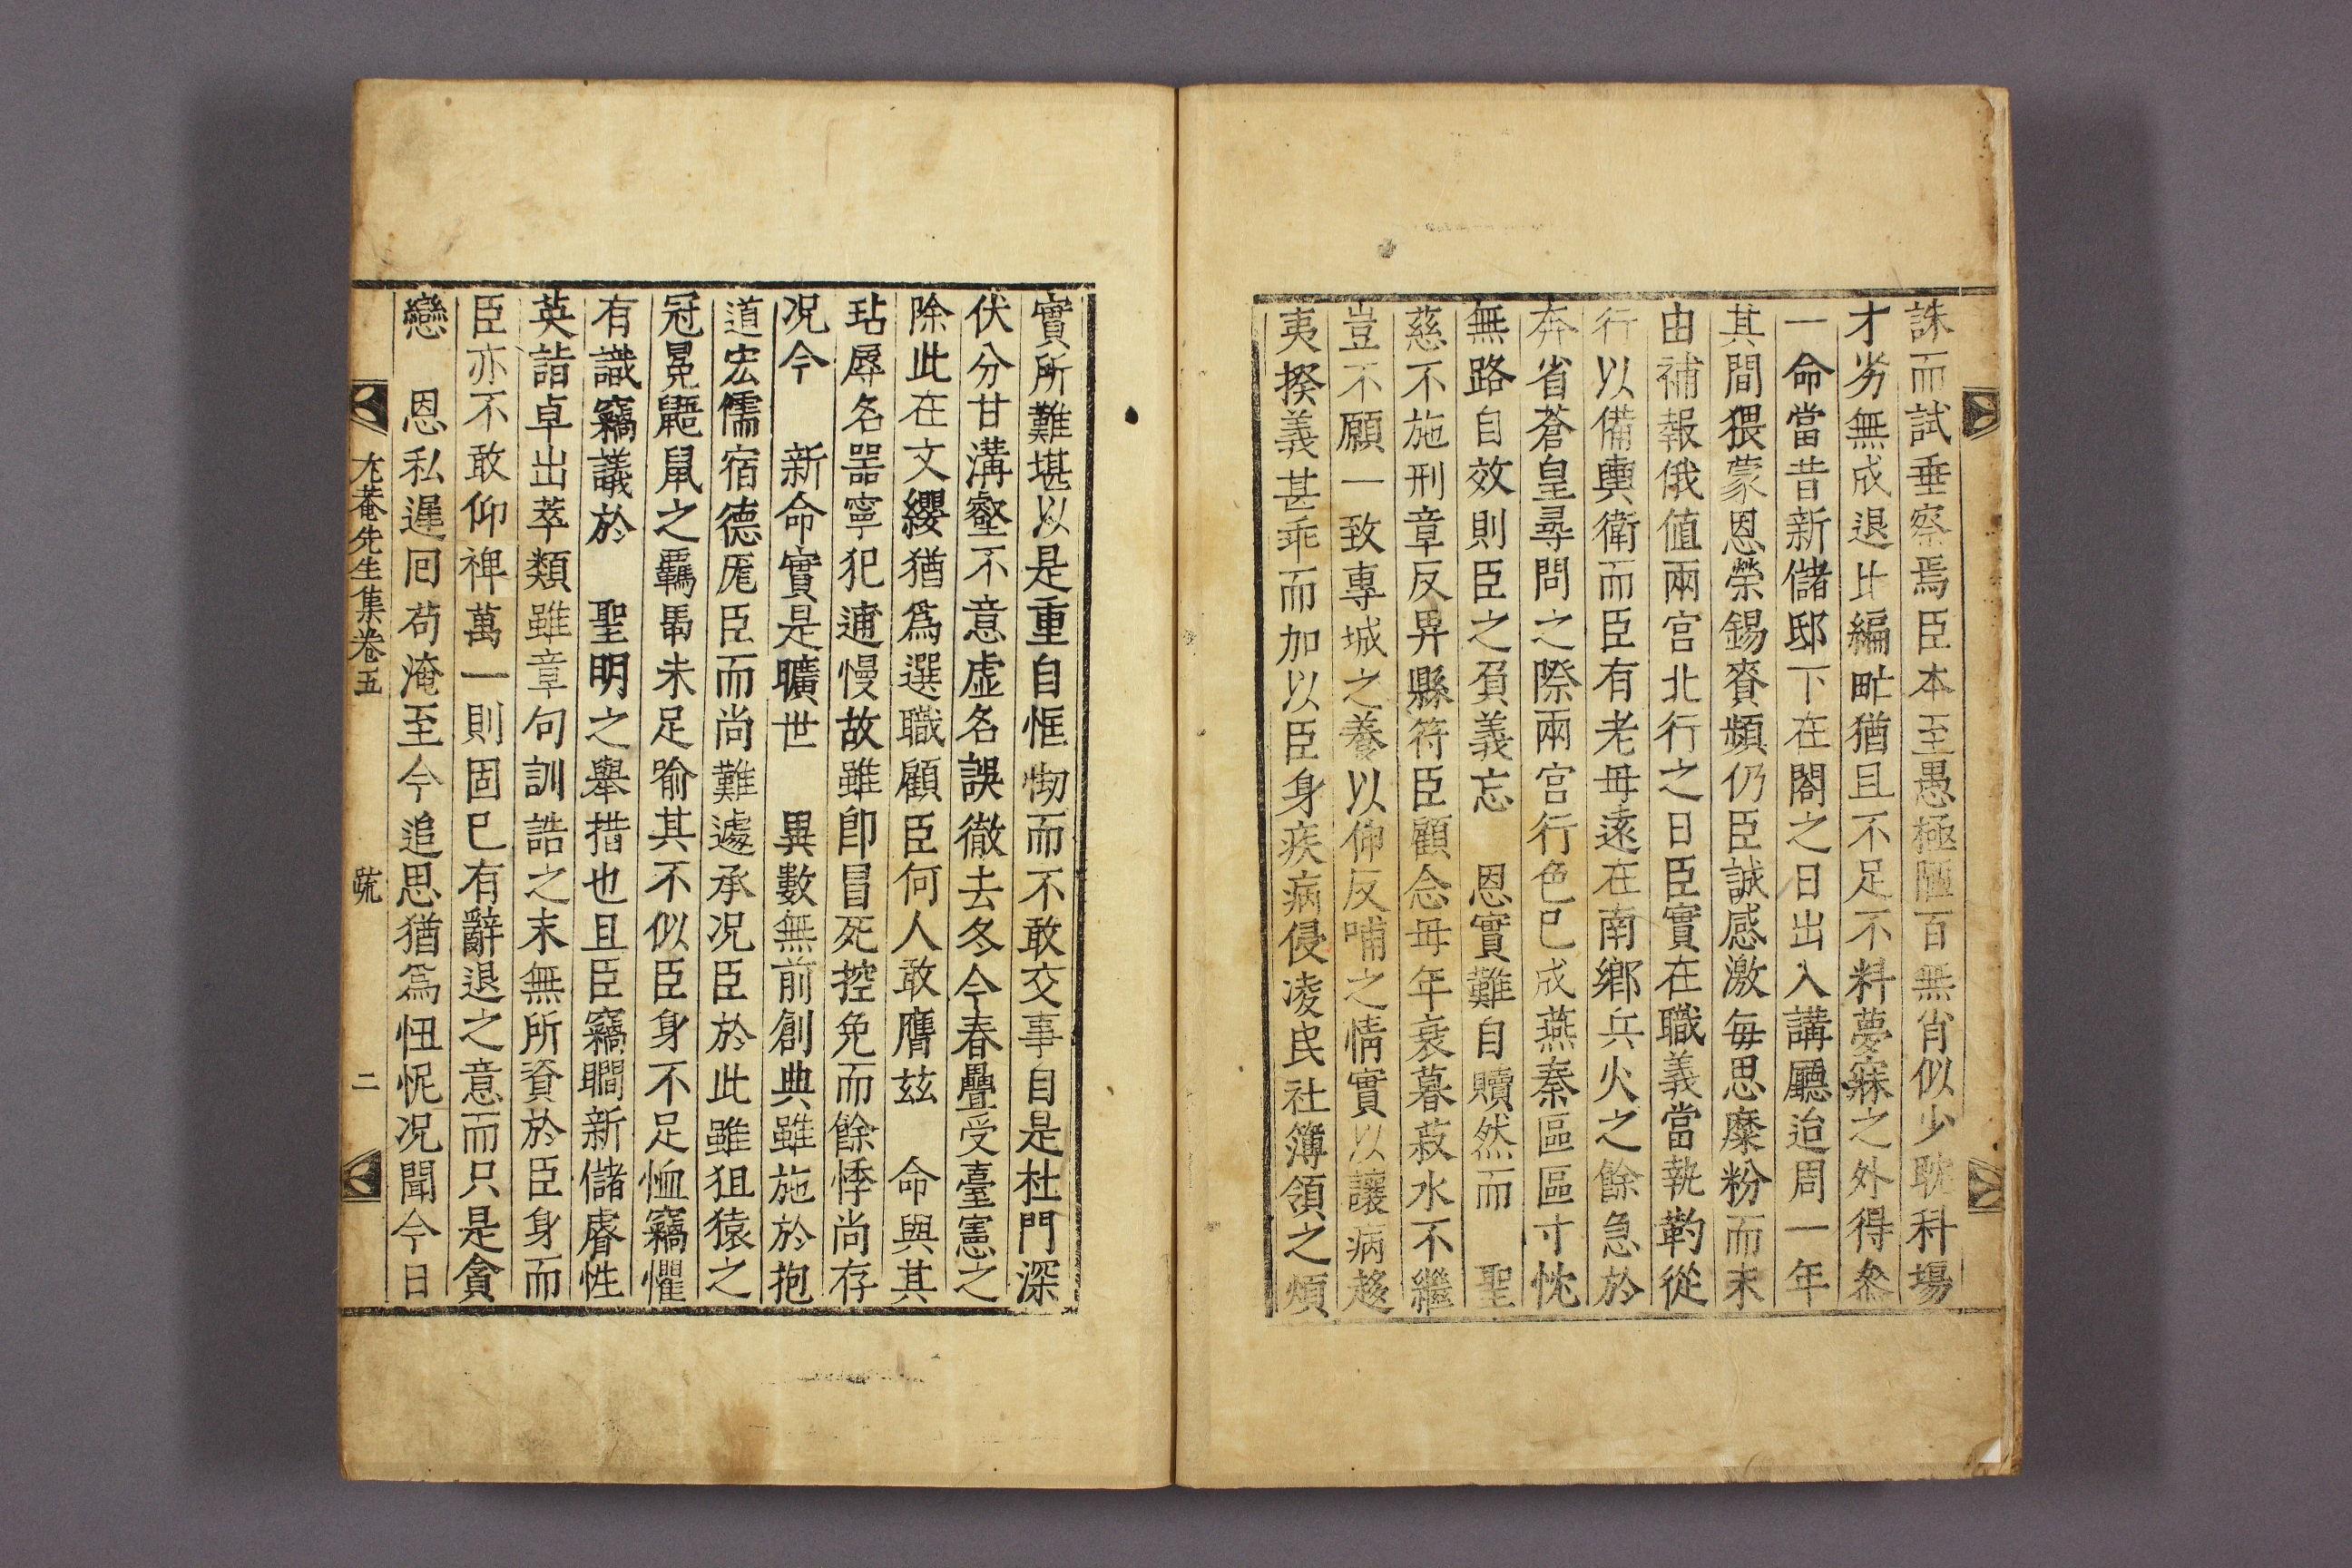 誅而試垂察焉臣本至愚極陋百無肖似少耽科場
才劣無成退比編甿猶且不足不料夢寐之外得叅
一命當昔新儲邸下在閤之日出入講廳迨周一年
其間猥蒙恩榮錫賚頻仍臣誠感激每思糜粉而末
由補報俄値兩宮北行之日臣實在職義當執靮從
行以備輿衛而臣有老母遠在南鄕兵火之餘急於
奔省蒼皇尋問之際兩宮行色已成燕秦區區寸忱
無路自效則臣之負義忘 恩實難自贖然而 聖
慈不施刑章反畀縣符臣顧念母年衰暮菽水不繼
豈不願一致專城之養以仰反哺之情實以讓病趍
夷揆義甚乖而加以臣身疾病侵凌民社簿領之煩
實所難堪以是重自恇㤼而不敢交事自是杜門深
伏分甘溝壑不意虛名誤徹去冬今春疊受臺憲之
除此在文纓猶爲選職顧臣何人敢膺玆 命與其
玷辱名器寧犯逋慢故雖卽冒死控免而餘悸尚存
况今 新命實是曠世 異數無前創典雖施於抱
道宏儒宿德厖臣而尚難遽承况臣於此雖狙猿之
冠冕鼯鼠之羈馽未足喻其不似臣身不足恤竊懼
有識竊議於 聖明之舉措也且臣竊瞷新儲睿性
英詣卓出萃類雖章句訓誥之末無所資於臣身而
臣亦不敢仰裨萬一則固已有辭退之意而只是貪
戀 恩私遲回苟淹至今追思猶爲忸怩况聞今日
尤菴先生集卷五 疏 二